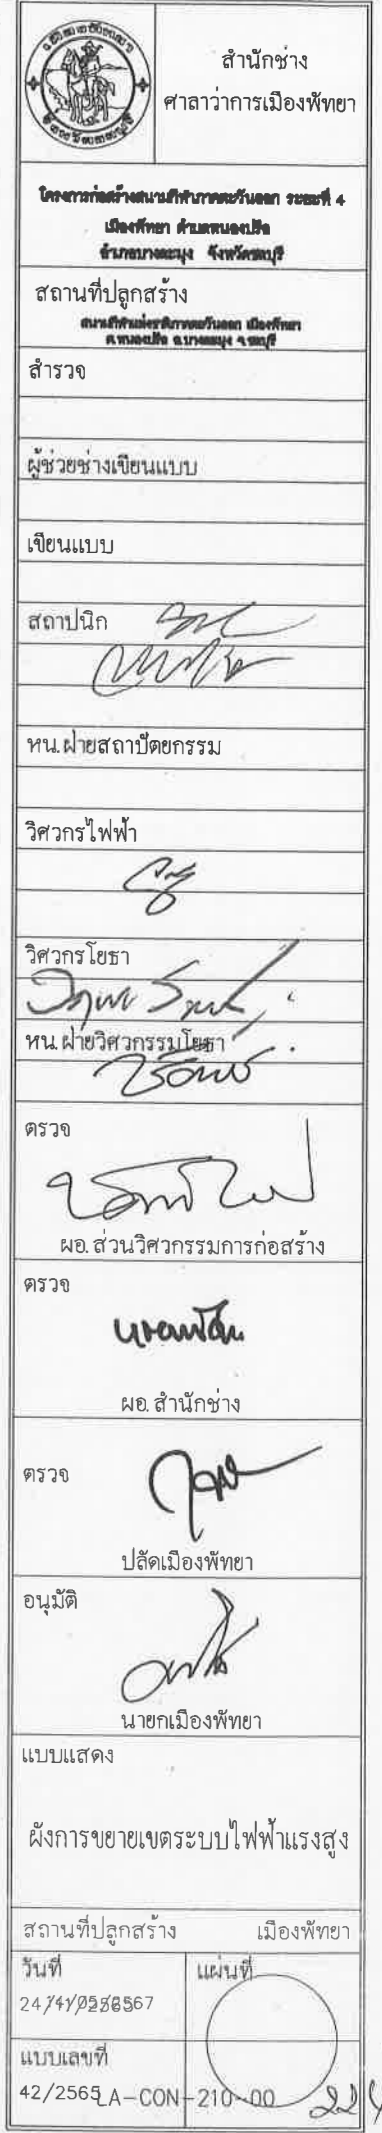 สำนักช่าง
ศาลาว่าการเมืองพัทยา
โครงการก่อสร้างสนามกีฬาภาคตะวันออก ระยะที่ 4
เมืองพัทยา ตำบลหนองปรือ
อำเภอบางละมุง จังหวัดชลบุรี
สถานที่ปลูกสร้าง
สนามกีฬาแห่งชาติภาคตะวันออก เมืองพัทยา
ต.หนองปรือ อ.บางละมุง จ.ชลบุรี
สำรวจ
ผู้ช่วยช่างเขียนแบบ
เขียนแบบ
สถาปนิก
หน.ฝ่ายสถาปัตยกรรม
วิศวกรไฟฟ้า
วิศวกรโยธา
หน.ฝ่ายวิศวกรรมโยธา
ตรวจ
ผอ.ส่วนวิศวกรรมการก่อสร้าง
ตรวจ
ผอ.สำนักช่าง
ตรวจ
ปลัดเมืองพัทยา
อนุมัติ
นายกเมืองพัทยา
แบบแสดง
ผังการขยายเขตระบบไฟฟ้าแรงสูง
สถานที่ปลูกสร้าง เมืองพัทยา
วันที่ แผ่นที่
แบบเลขที่
42/2565 LA-CON-210-00